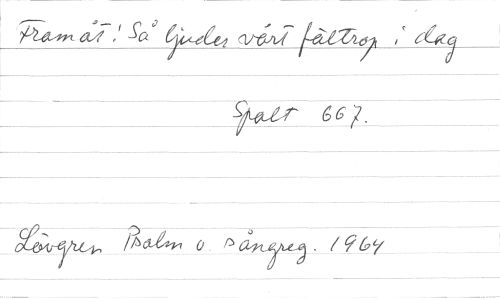 Framåt! Så ljudes vårt fältrop i dag
Spalt 667.
Lövgren Psalm o. sångreg. 1964